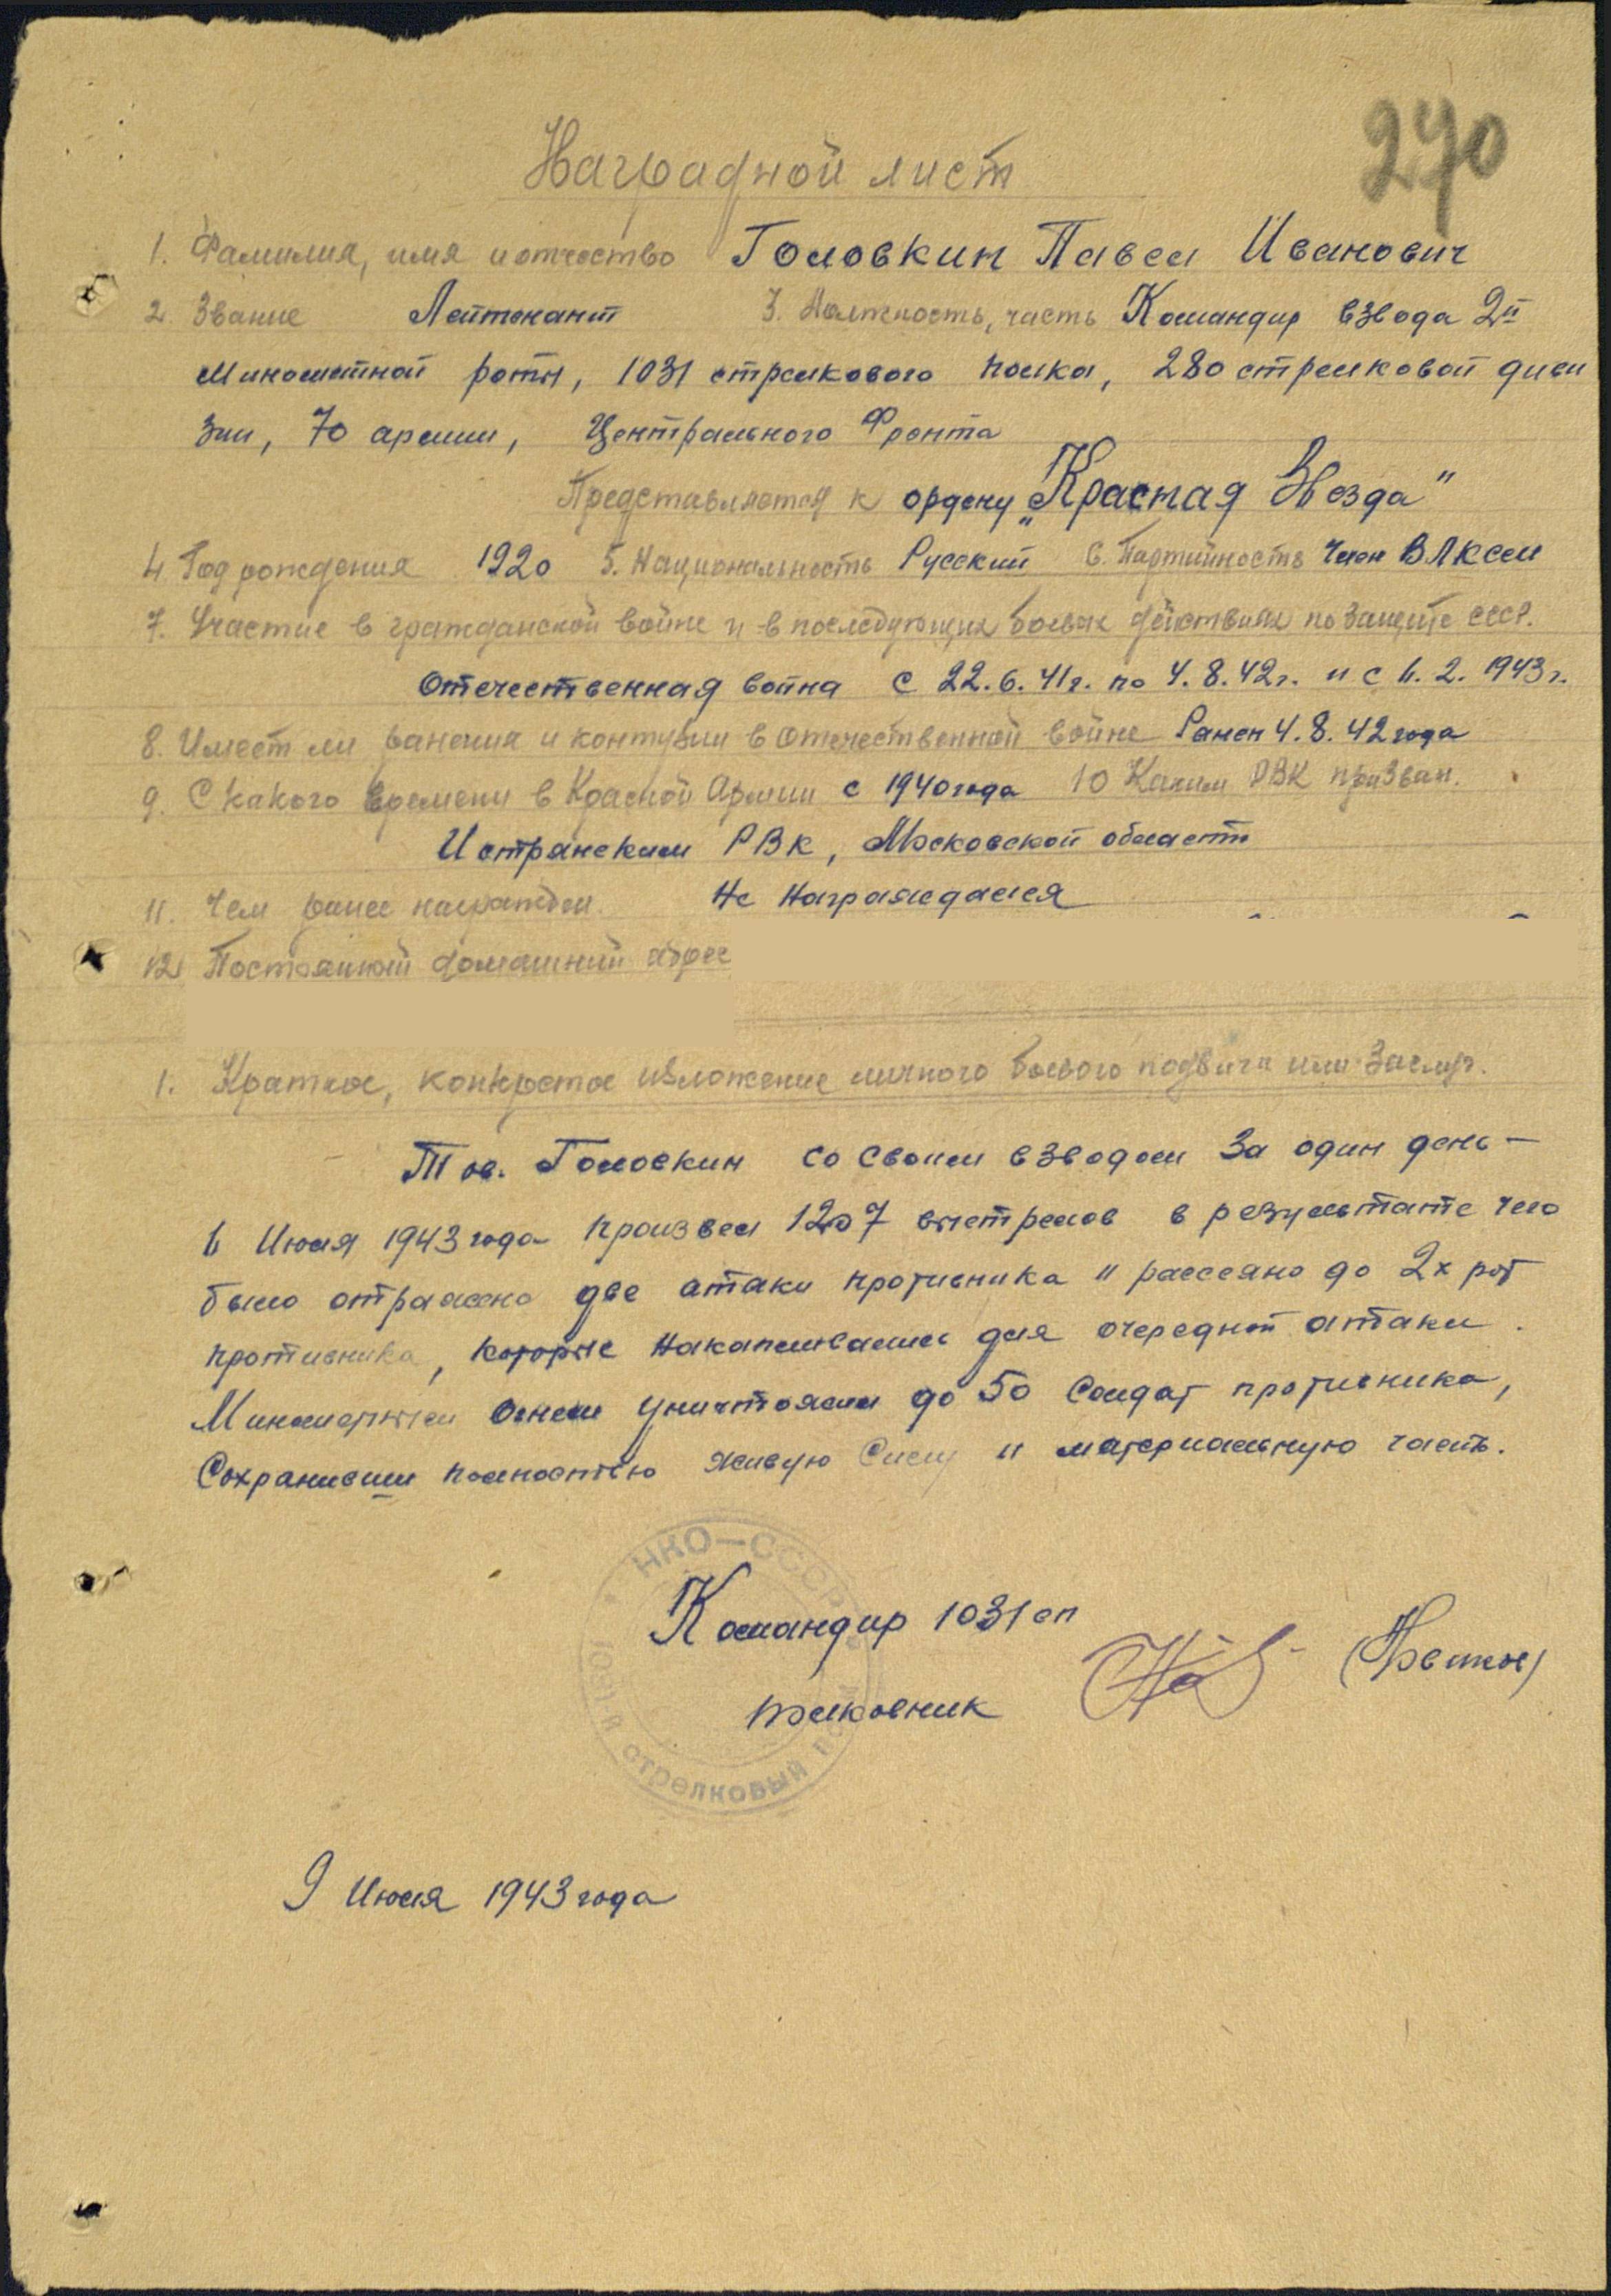 270
Наградной лист
1. Фамилия, имя и отчество Головкин Павел Иванович
2. Звание Лейтенант 3. Должность, часть Командир взвода 2й
Минометной роты, 1031 стрелкового полка, 280 стрелковой диви
зии, 70 армии, Центрального Фронта
Представляется к ордену „Красная Звезда"
4. Год рождения 1920 5. Национальность Русский 6. Партийность Член ВЛКСМ
7. Участие в гражданской войне и в последующих боевых действиях по защите СССР.
Отечественная война с 22.6.41г. по 4.8.42г. и с 6.2.1943г.
8. Имеет ли ранения и контузии в Отечественной войне Ранен 4.8.42 года
9. С какого времени в Красной Армии с 1940 года 10 Каким РВК призван.
Истринским РВК, Московской области
11. Чем ранее награжден. Не Награждался
12 Постоянный домашний адрес
1. Краткое, конкретное изложение личного боевого подвига или заслуг.
Тов. Головкин со своим взводом за один день —
6 Июля 1943 года произвел 1207 выстрелов в результате чего
было отражено две атаки противника и рассеяно до 2х рот
противника, которые накапливались для очередной атаки.
Минометным огнем уничтожил до 50 солдат противника,
Сохранивши полностью живую силу и материальную часть.
НКО—СССР
1031й стрелковый полк
Командир 1031 сп
полковник
9 Июля 1943 года